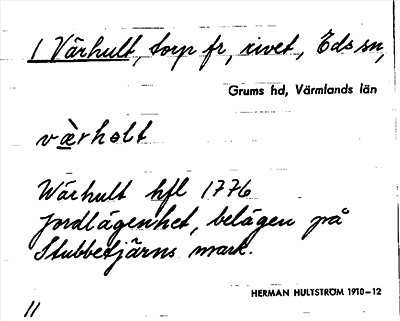 1 Värhult, torp fr, rivet, Eds sn,
Grums hd, Värmlands län
värholt
Wärhult hfl 1776
Jordlägenhet, belägen på
Stubbetjärns mark.
HERMAN HULTSTRÖM 1910-12
11